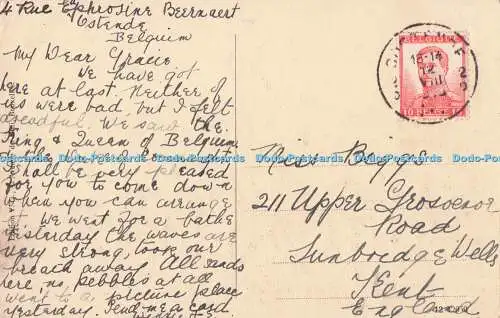 4 Rue Euphrosine Beernaert
Ostende
Belgium
My Dear Gracie
We have got
here at last. Neither of
us were bad, but I felt
dreadful. We saw the
King & Queen of Belgium
shall be very pleased
for you to come down
when you can arrange
it. We went for a bathe
yesterday the waves are
very strong, took our
breath away. All sands
here, no pebbles at all
went to a picture place
yesterday. Send me a card
Miss Biggs
211 Upper Grosvenor
Road
Tunbridge Wells
Kent
England
BELGIQUE
13-14
12
VIII
10
www.Delcampe.net